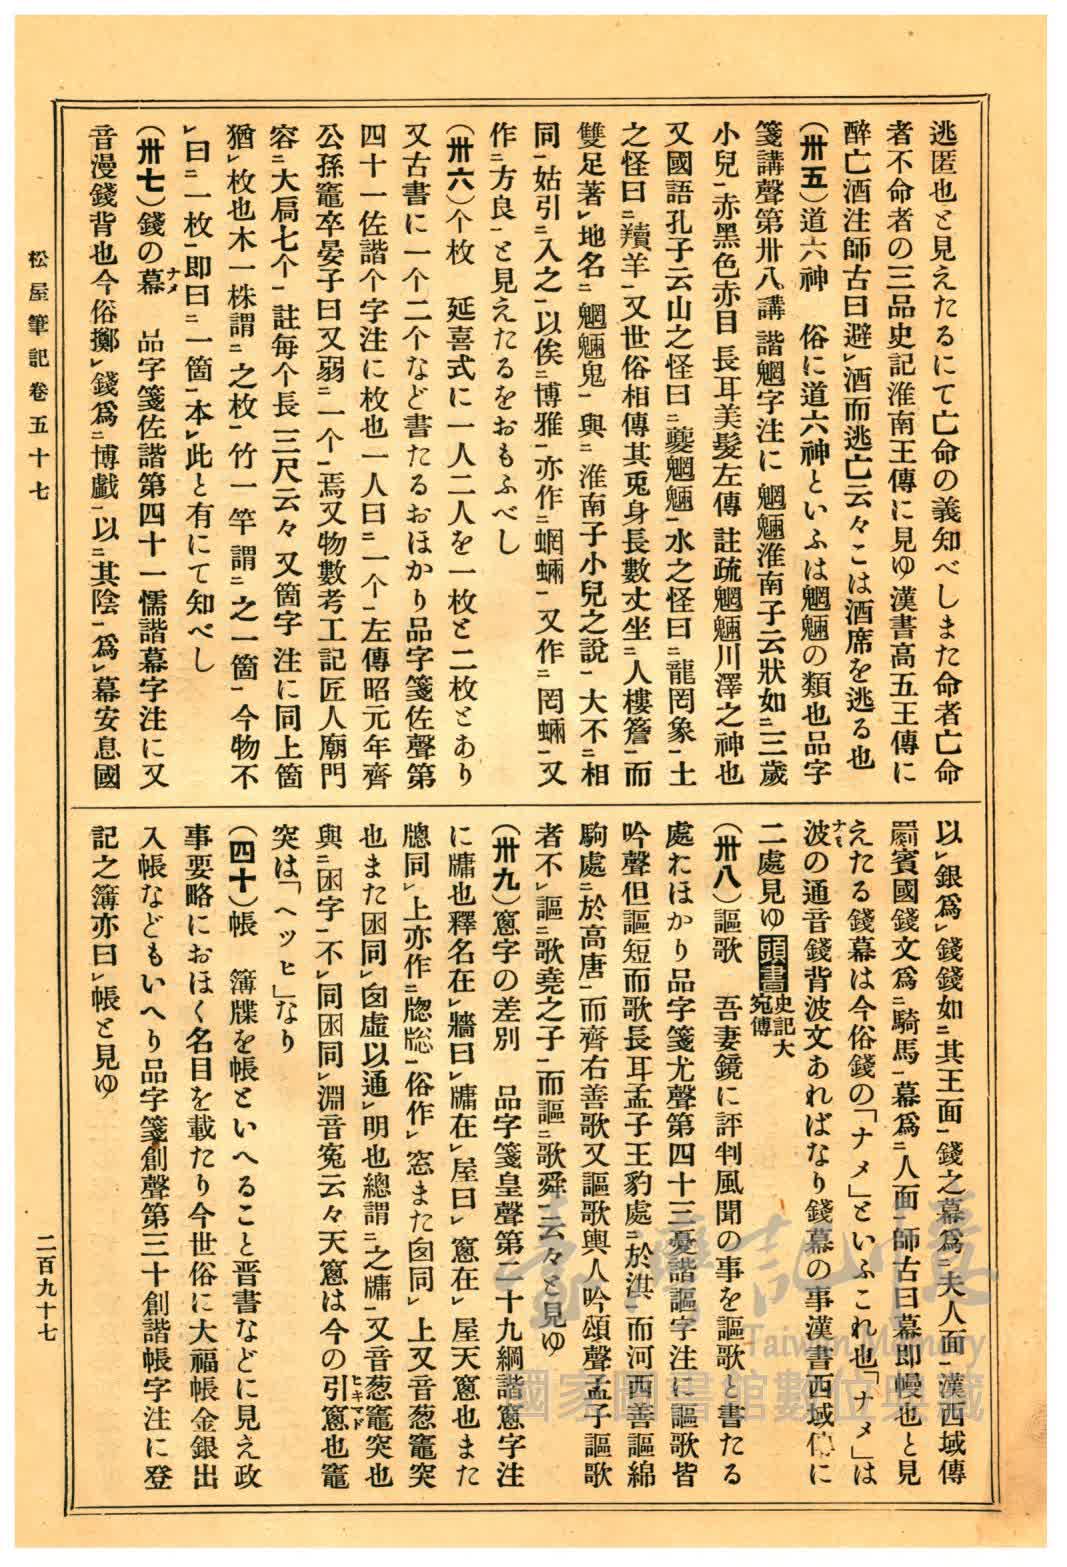 逃匿也と見えたるにて亡命の義知べしまた命者亡命
者不命者の三品史記淮南王傳に見ゆ漢書高五王傳に
醉亡酒注師古曰避㆑酒而逃亡云々こは酒席を逃る也
（卅五）道六神　俗に道六神といふは魍魎の類也品字
箋講聲第卅八講 諧魍字注に 魍魎淮南子云狀如㆓三歲
小兒㆒赤黑色赤目 長耳美髮左傳 註疏魍魎川澤之神也
又國語孔子云山之怪曰㆓夔魍魎㆒水之怪曰㆓龍罔象㆒土
之怪曰㆓羵羊㆒又世俗相傳其兎身長數丈坐㆓人樓簷㆒而
雙足著㆑地名㆓魍魎鬼㆒與㆓淮南子小兒之說㆒大不㆓相
同㆒姑引㆓入之㆒以俟㆓博雅㆒亦作㆓蝄蜽㆒又作㆓罔蜽㆒又
作㆓方良㆒と見えたるをおもふべし
（卅六）个枚　延喜式に一人二人を一枚と二枚とあり
又古書に一个二个など書たるおほかり品字箋佐聲第
四十一佐諧个字注に枚也一人曰㆓一个㆒左傳昭元年齊
公孫竈卒晏子曰又弱㆓一个㆒焉又物數考工記匠人廟門
容㆓大扃七个㆒註每个長三尺云々又箇字注に同上箇
猶㆑枚也木一株謂㆓之枚㆒竹一竿謂㆓之一箇㆒今物不
㆑曰㆓一枚㆒即曰㆓一箇㆒本㆑此と有にて知べし
（卅七）錢の幕ナメ　品字箋佐諧第四十一懦諧幕字注に又
音漫錢背也今俗擲㆑錢爲㆓博戲㆒以㆓其陰㆒爲㆑幕安息國
以㆑銀爲㆑錢錢如㆓其王面㆒錢之幕爲㆓夫人面㆒漢西域傳
罽賓國錢文爲㆓騎馬㆒幕爲㆓人面㆒師古曰幕即幔也と見
えたる錢幕は今俗錢の「ナメ」といふこれ也「ナメ」は
波ナミの通音錢背波文あればなり錢幕の事漢書西域傳に
二處見ゆ頭書史記大宛傳
（卅八）謳歌　吾妻鏡に評判風聞の事を謳歌と書たる
處おほかり品字箋尤聲第四十三憂諧謳字注に謳歌皆
吟聲但謳短而歌長耳孟子王豹處㆓於淇㆒而河西善謳綿
駒處㆓於高唐㆒而齊右善歌又謳歌輿人吟頌聲孟子謳歌
者不㆑謳㆓歌堯之子㆒而謳㆓歌舜㆒云々と見ゆ
（卅九）窻字の差別　品字箋皇聲第二十九綱諧窻字注
に牗也釋名在㆑牆曰㆑牗在㆑屋曰㆑窻在㆑屋天窻也また
牕同㆑上亦作㆓牎𥦗㆒俗作㆑窓また囱同㆑上又音葱竈突
也また囦同㆑囪虛以通㆑明也總謂㆓之牗㆒又音葱竈突也
與㆓囦字㆒不㆑同囦同㆑淵音寃云々天窻は今の引窻ヒキマド也竈
突は「ヘツヒ」なり
（四十）帳　簿牒を帳といへること晋書などに見え政
事要略におほく名目を載たり今世俗に大福帳金銀出
入帳などもいへり品字箋創聲第三十創諧帳字注に登
記之簿亦曰㆑帳と見ゆ
松屋筆記卷五十七
二百九十七
臺灣記憶
Taiwan Memory
國家圖書館數位典藏